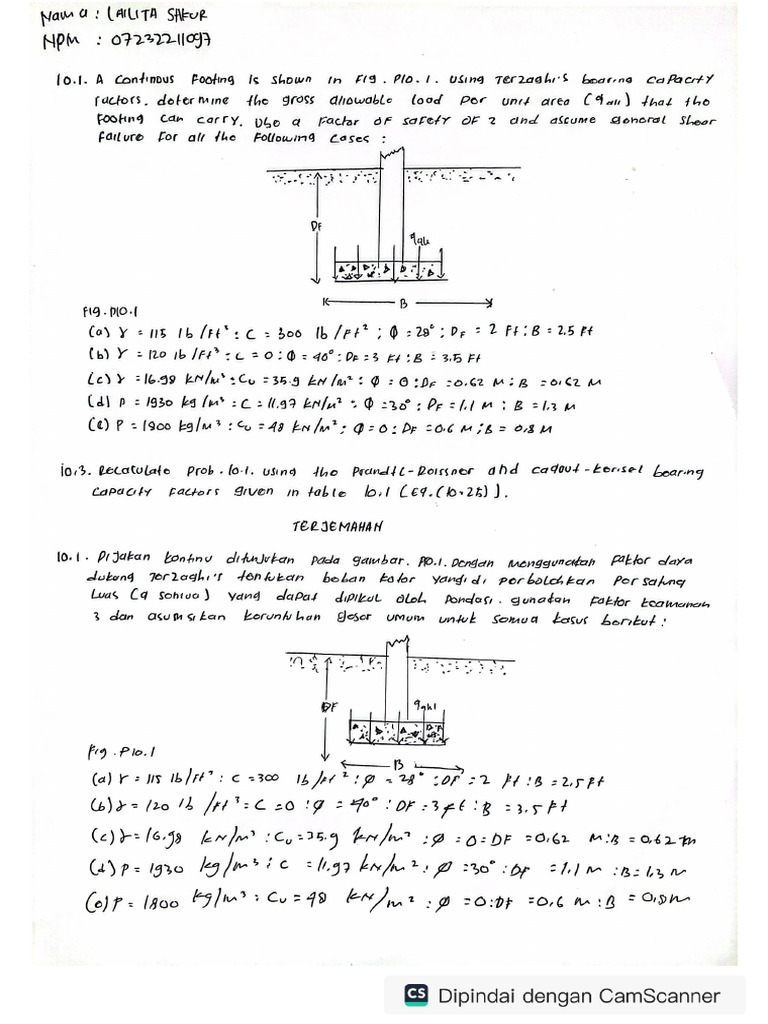 Nama : LAILITA SAKUR
NPM : 07232211097
10.1. A continous Footing is shown in Fig. P10.1. Using Terzaghi's bearing capacity
Factors. determine the gross allowable load per unit area (qall) that the
Footing can carry. Use a Factor of safety of 2 and assume general shear
failure for all the following cases :
DF
qall
B
Fig. P10.1
(a) γ = 115 lb/ft³ : C = 300 lb/ft² ; Ø = 28° ; DF = 2 Ft : B = 2.5 Ft
(b) γ = 120 lb/ft³ : C = 0 : Ø = 40° : DF = 3 Ft : B = 3.5 Ft
(c) γ = 16.98 kN/m³ : Cu = 35.9 kN/m² : Ø = 0 : DF = 0.62 M : B = 0.62 M
(d) P = 1930 kg/m³ : C = 11.97 kN/m² : Ø = 30° : DF = 1.1 M : B = 1.3 M
(e) P = 1800 kg/m³ : Cu = 48 kN/m² ; Ø = 0 : DF = 0.6 M ; B = 0.8 M
10.3. Recatulate Prob. 10.1. using the Prandtl-Reissner and caquot-kerisel bearing
capacity factors given in table 10.1 (Eq. (10.25)).
TERJEMAHAN
10.1. Pijakan kontinu ditunjukan pada gambar. P10.1. Dengan menggunakan faktor daya
dukung Terzaghi's tentukan beban kotor yang di perbolehkan per satung
luas (q semua) yang dapat dipikul oleh pondasi. gunakan faktor keamanan
3 dan asumsikan keruntuhan geser umum untuk semua kasus berikut :
DF
B
Fig. P10.1
(a) γ = 115 lb/ft³ : C = 300 lb/ft² : Ø = 28° : DF = 2 ft : B = 2.5 ft
(b) γ = 120 lb/ft³ = C = 0 : Ø = 40° : DF = 3 ft : B = 3.5 ft
(c) γ = 16.98 kN/m³ : Cu = 35.9 kN/m² : Ø = 0 = DF = 0.62 M : B = 0.62 m
(d) P = 1930 kg/m³ : C = 11.97 kN/m² : Ø = 30° : DF = 1.1 M : B = 1.3 M
(e) P = 1800 kg/m³ : Cu = 48 kN/m² : Ø = 0 : DF = 0.6 M : B = 0.8 M
CS Dipindai dengan CamScanner